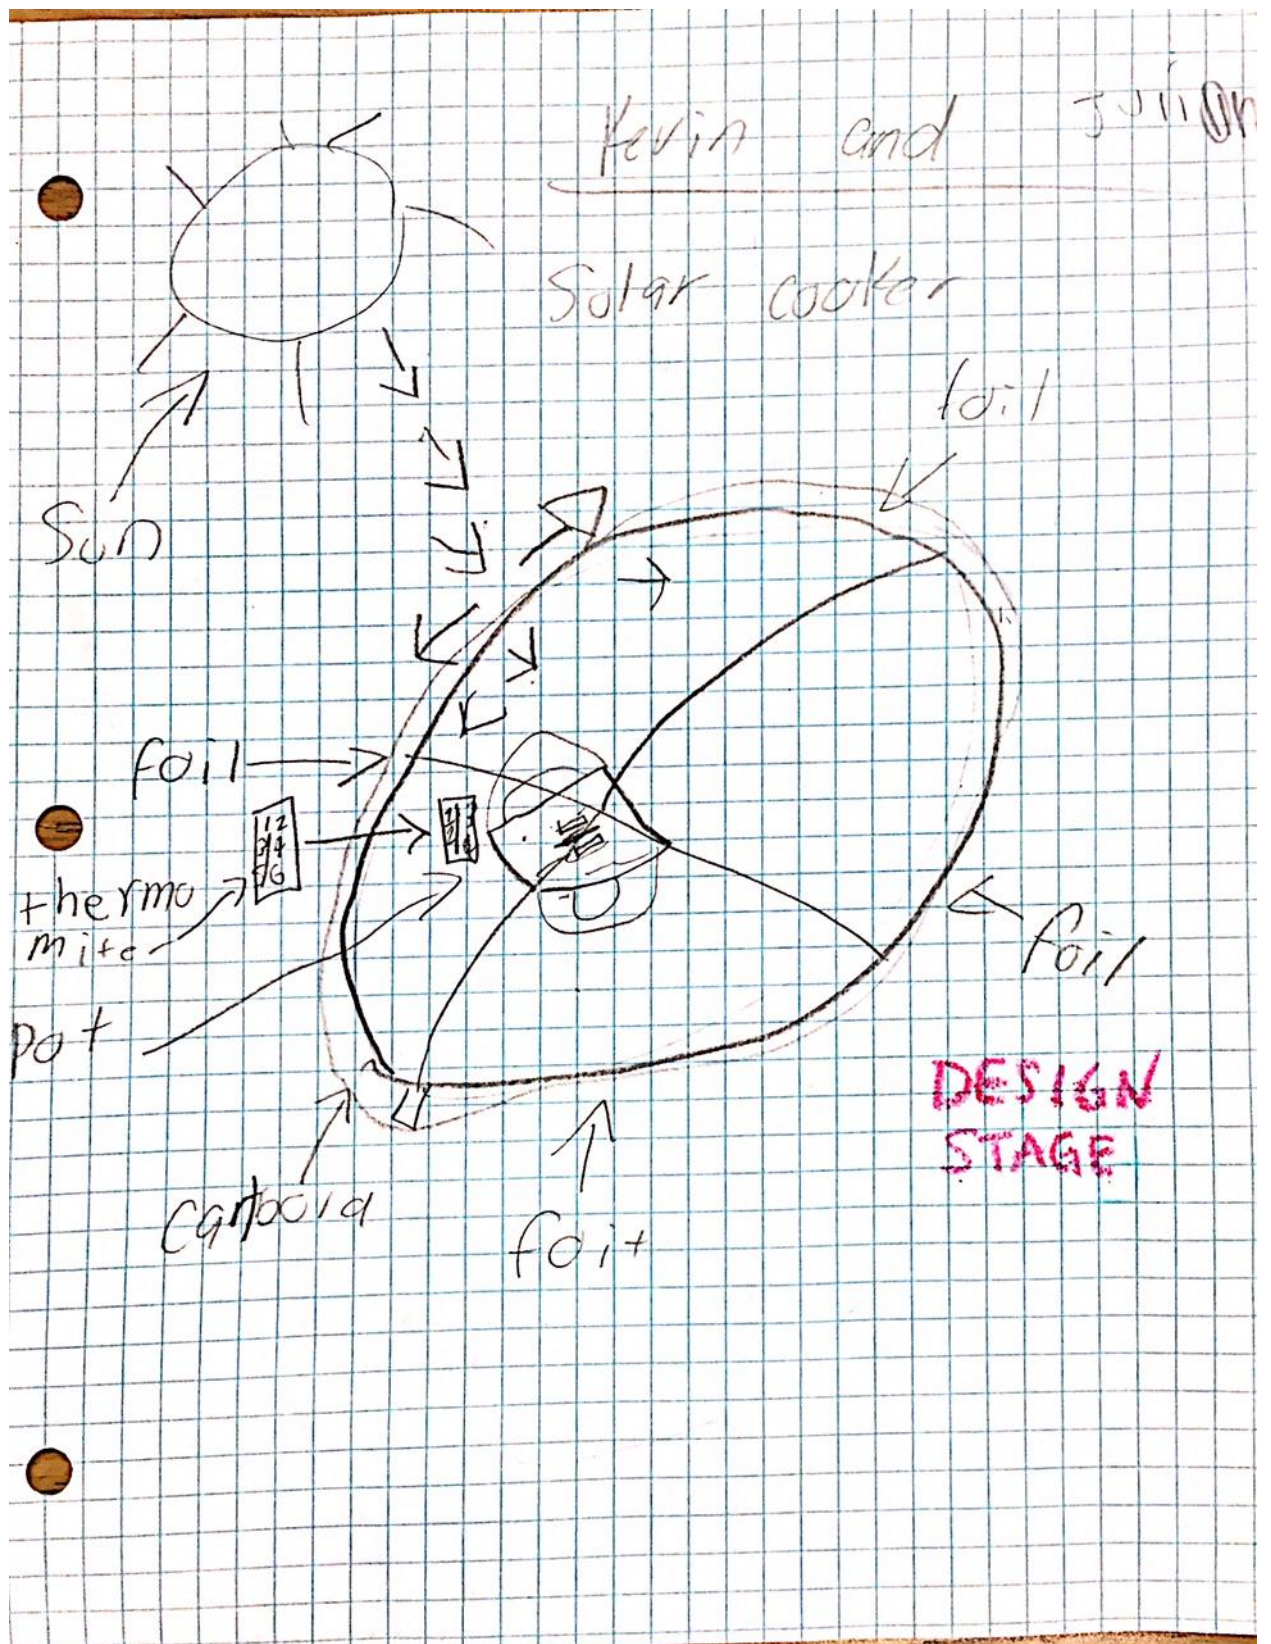 Kevin and Julian
Solar cooker
foil
Sun
foil
12
34
56
thermo
mite
pot
foil
DESIGN
STAGE
Cartboard
foil